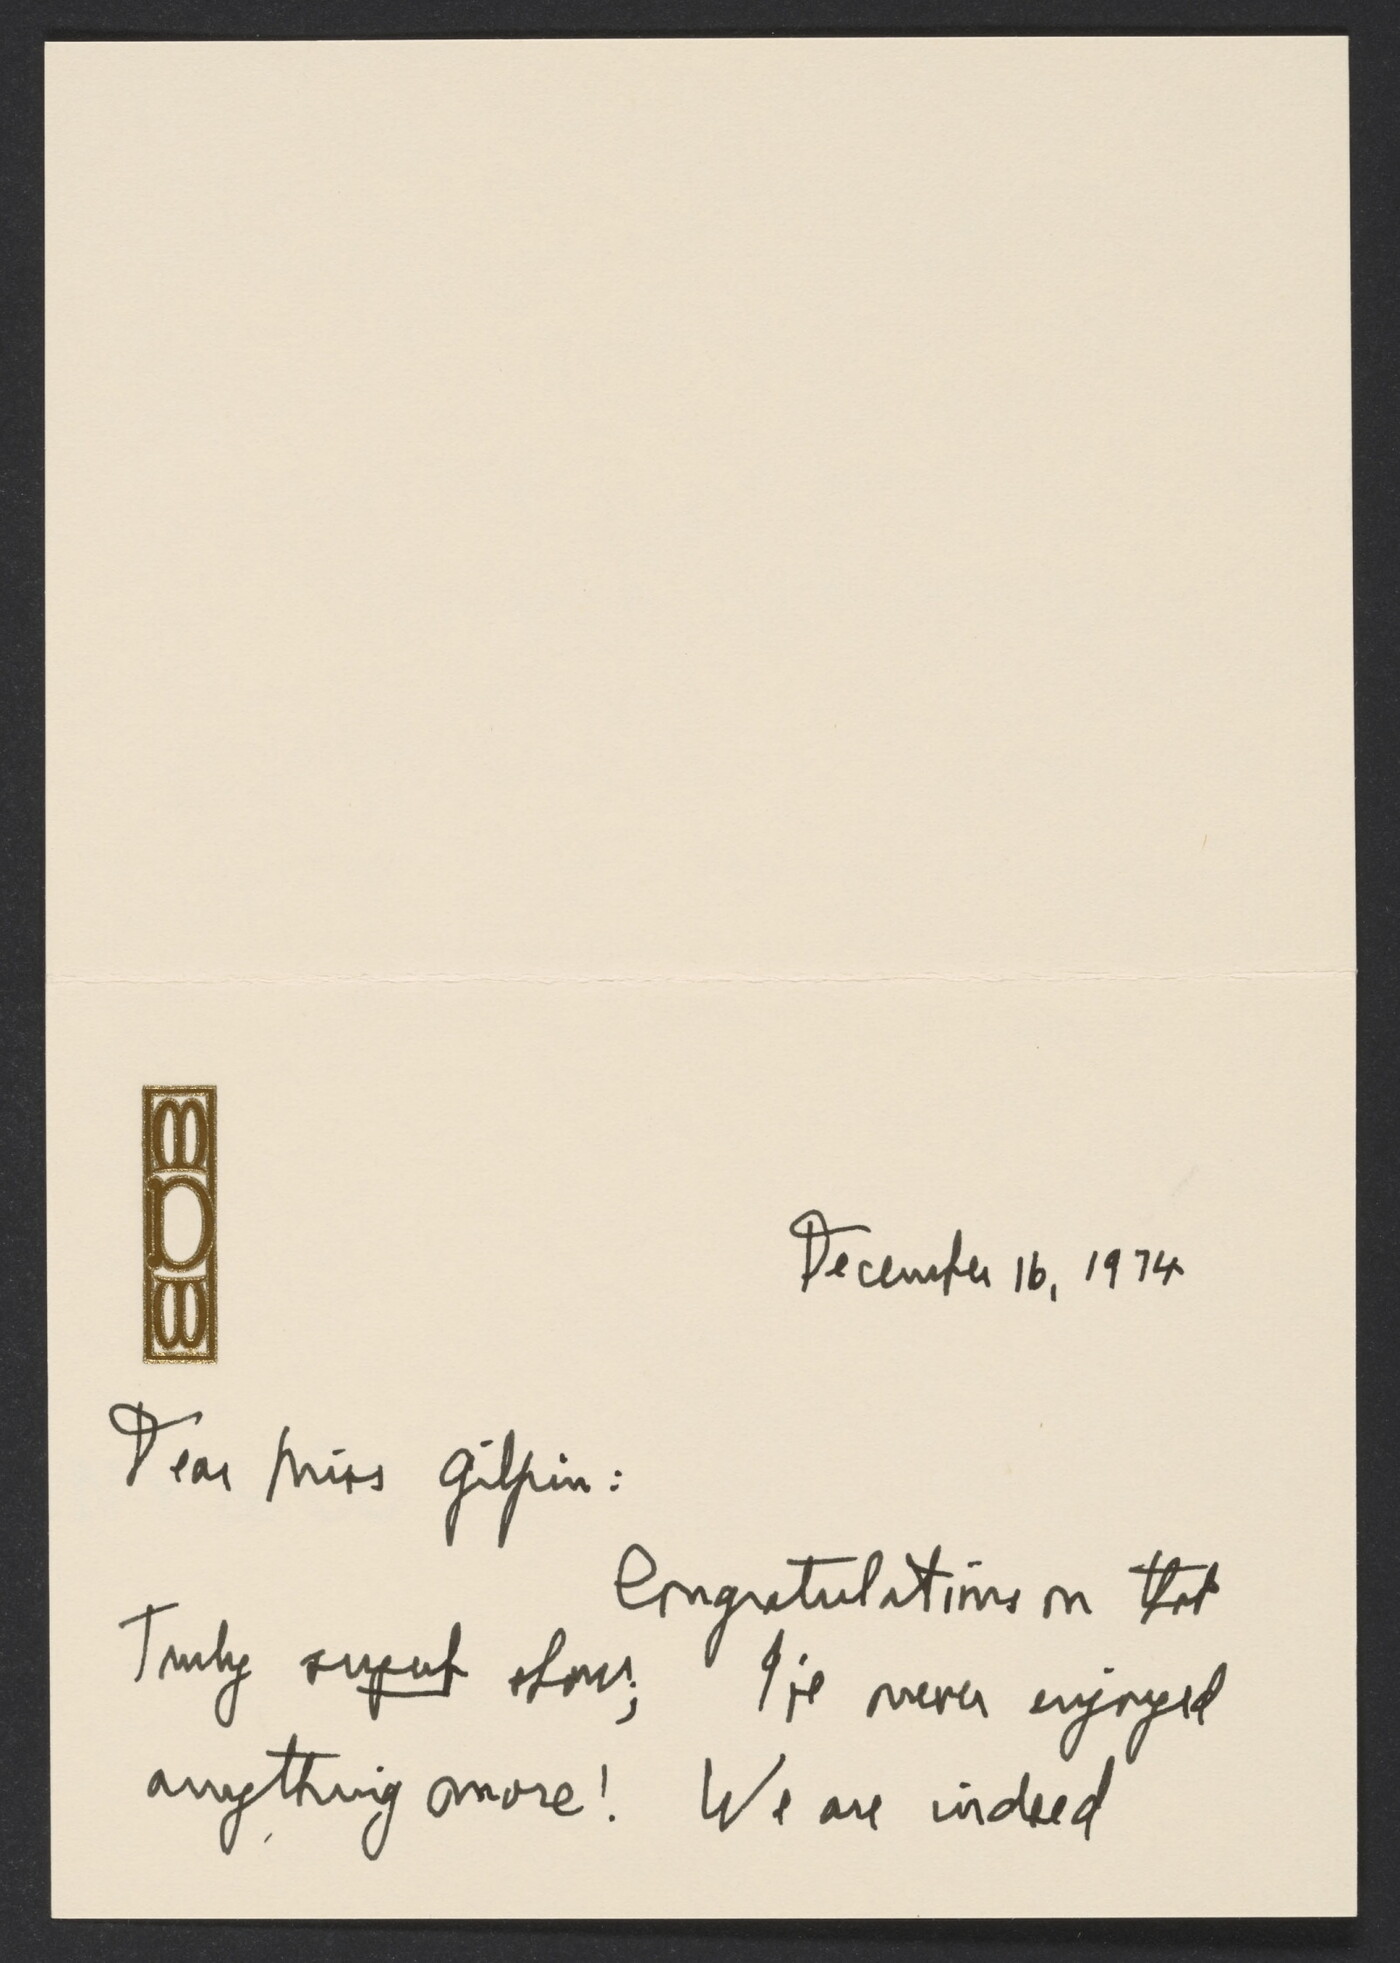 December 16, 1974
Dear Miss Gilpin:
Congratulations on that
Truly superb show; I've never enjoyed
anything more! We are indeed